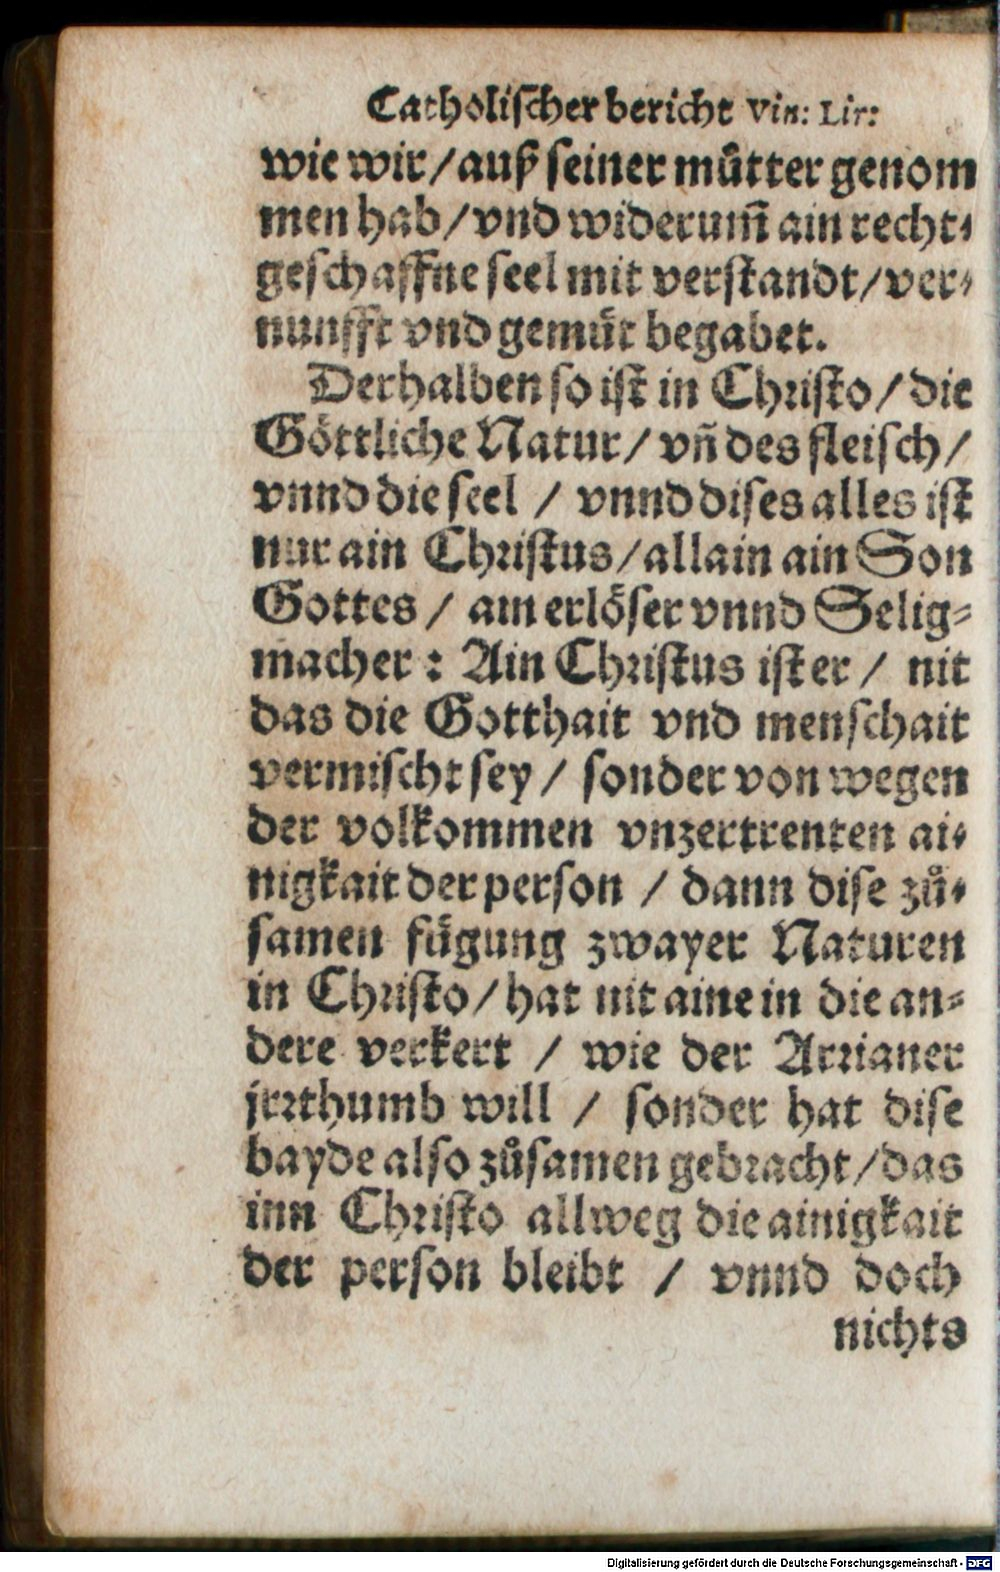 Catholischer bericht Vin: Lir:
wie wir / auß seiner můtter genom
men hab / vnd widerum̃ ain recht⸗
geschaffne seel mit verstandt / ver⸗
nunfft vnd gemüt begabet.
Derhalben so ist in Christo / die
Göttliche Natur / vñ des fleisch /
vnnd die seel / vnnd dises alles ist
nur ain Christus / allain ain Son
Gottes / ain erlöser vnnd Selig⸗
macher : Ain Christus ist er / nit
das die Gotthait vnd menschait
vermischt sey / sonder von wegen
der volkommen vnzertrenten ai⸗
nigkait der person / dann dise zů⸗
samen fügung zwayer Naturen
in Christo / hat nit aine in die an⸗
dere verkert / wie der Arrianer
jrrthumb will / sonder hat dise
bayde also zůsamen gebracht / das
inn Christo allweg die ainigkait
der person bleibt / vnnd doch
nichts
Digitalisierung gefördert durch die Deutsche Forschungsgemeinschaft - DFG